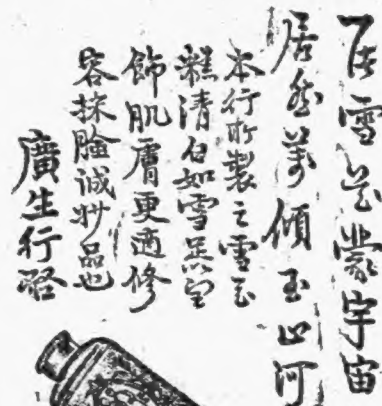 雪花蒙宇宙
居然萬傾玉山河
本行所製之雪花
糕清白如雪
飾肌膚更適修
容抹臉誠妙品也
廣生行啓